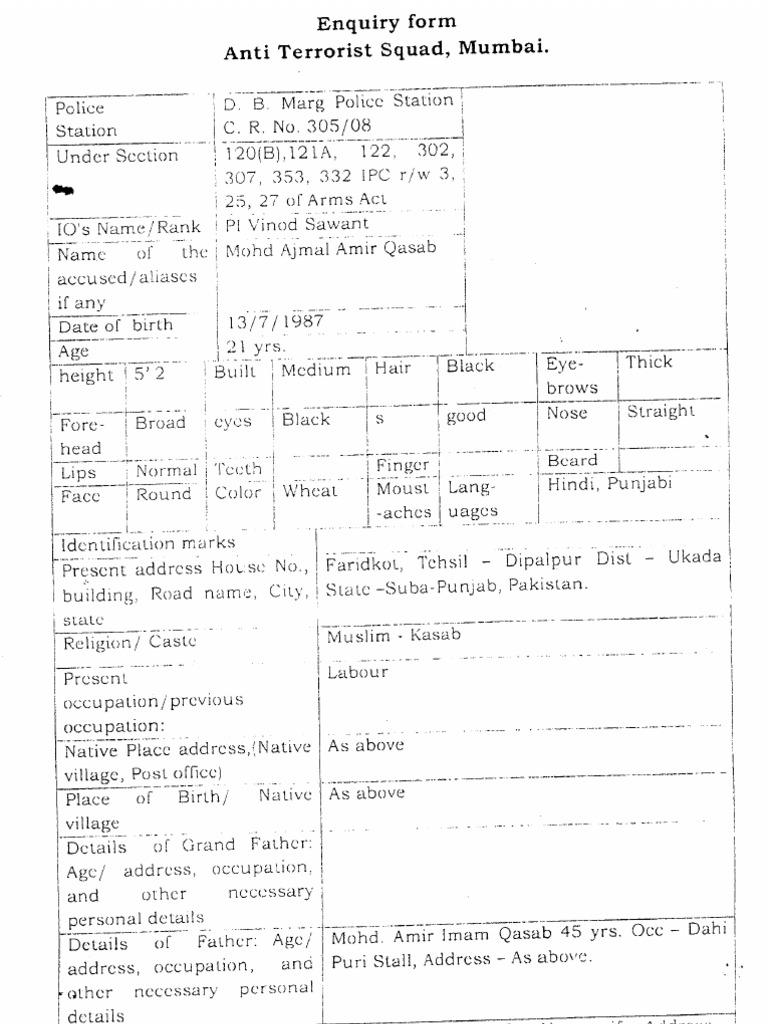 Enquiry form
Anti Terrorist Squad, Mumbai.
Police Station D. B. Marg Police Station
C. R. No. 305/08
Under Section 120(B),121A, 122, 302,
307, 353, 332 IPC r/w 3,
25, 27 of Arms Act
IO's Name/Rank PI Vinod Sawant
Name of the Mohd Ajmal Amir Qasab
accused/aliases
if any
Date of birth 13/7/1987
Age 21 yrs.
height 5' 2 Built Medium Hair Black Eye-brows Thick
Fore-head Broad eyes Black s good Nose Straight
Lips Normal Teeth Finger Beard
Face Round Color Wheat Moust-aches Lang-uages Hindi, Punjabi
Identification marks
Present address House No., Faridkot, Tehsil – Dipalpur Dist – Ukada
building, Road name, City, State –Suba-Punjab, Pakistan.
state
Religion/ Caste Muslim - Kasab
Present Labour
occupation/previous
occupation:
Native Place address,(Native As above
village, Post office)
Place of Birth/ Native As above
village
Details of Grand Father:
Age/ address, occupation,
and other necessary
personal details
Details of Father: Age/ Mohd. Amir Imam Qasab 45 yrs. Occ – Dahi
address, occupation, and Puri Stall, Address – As above.
other necessary personal
details